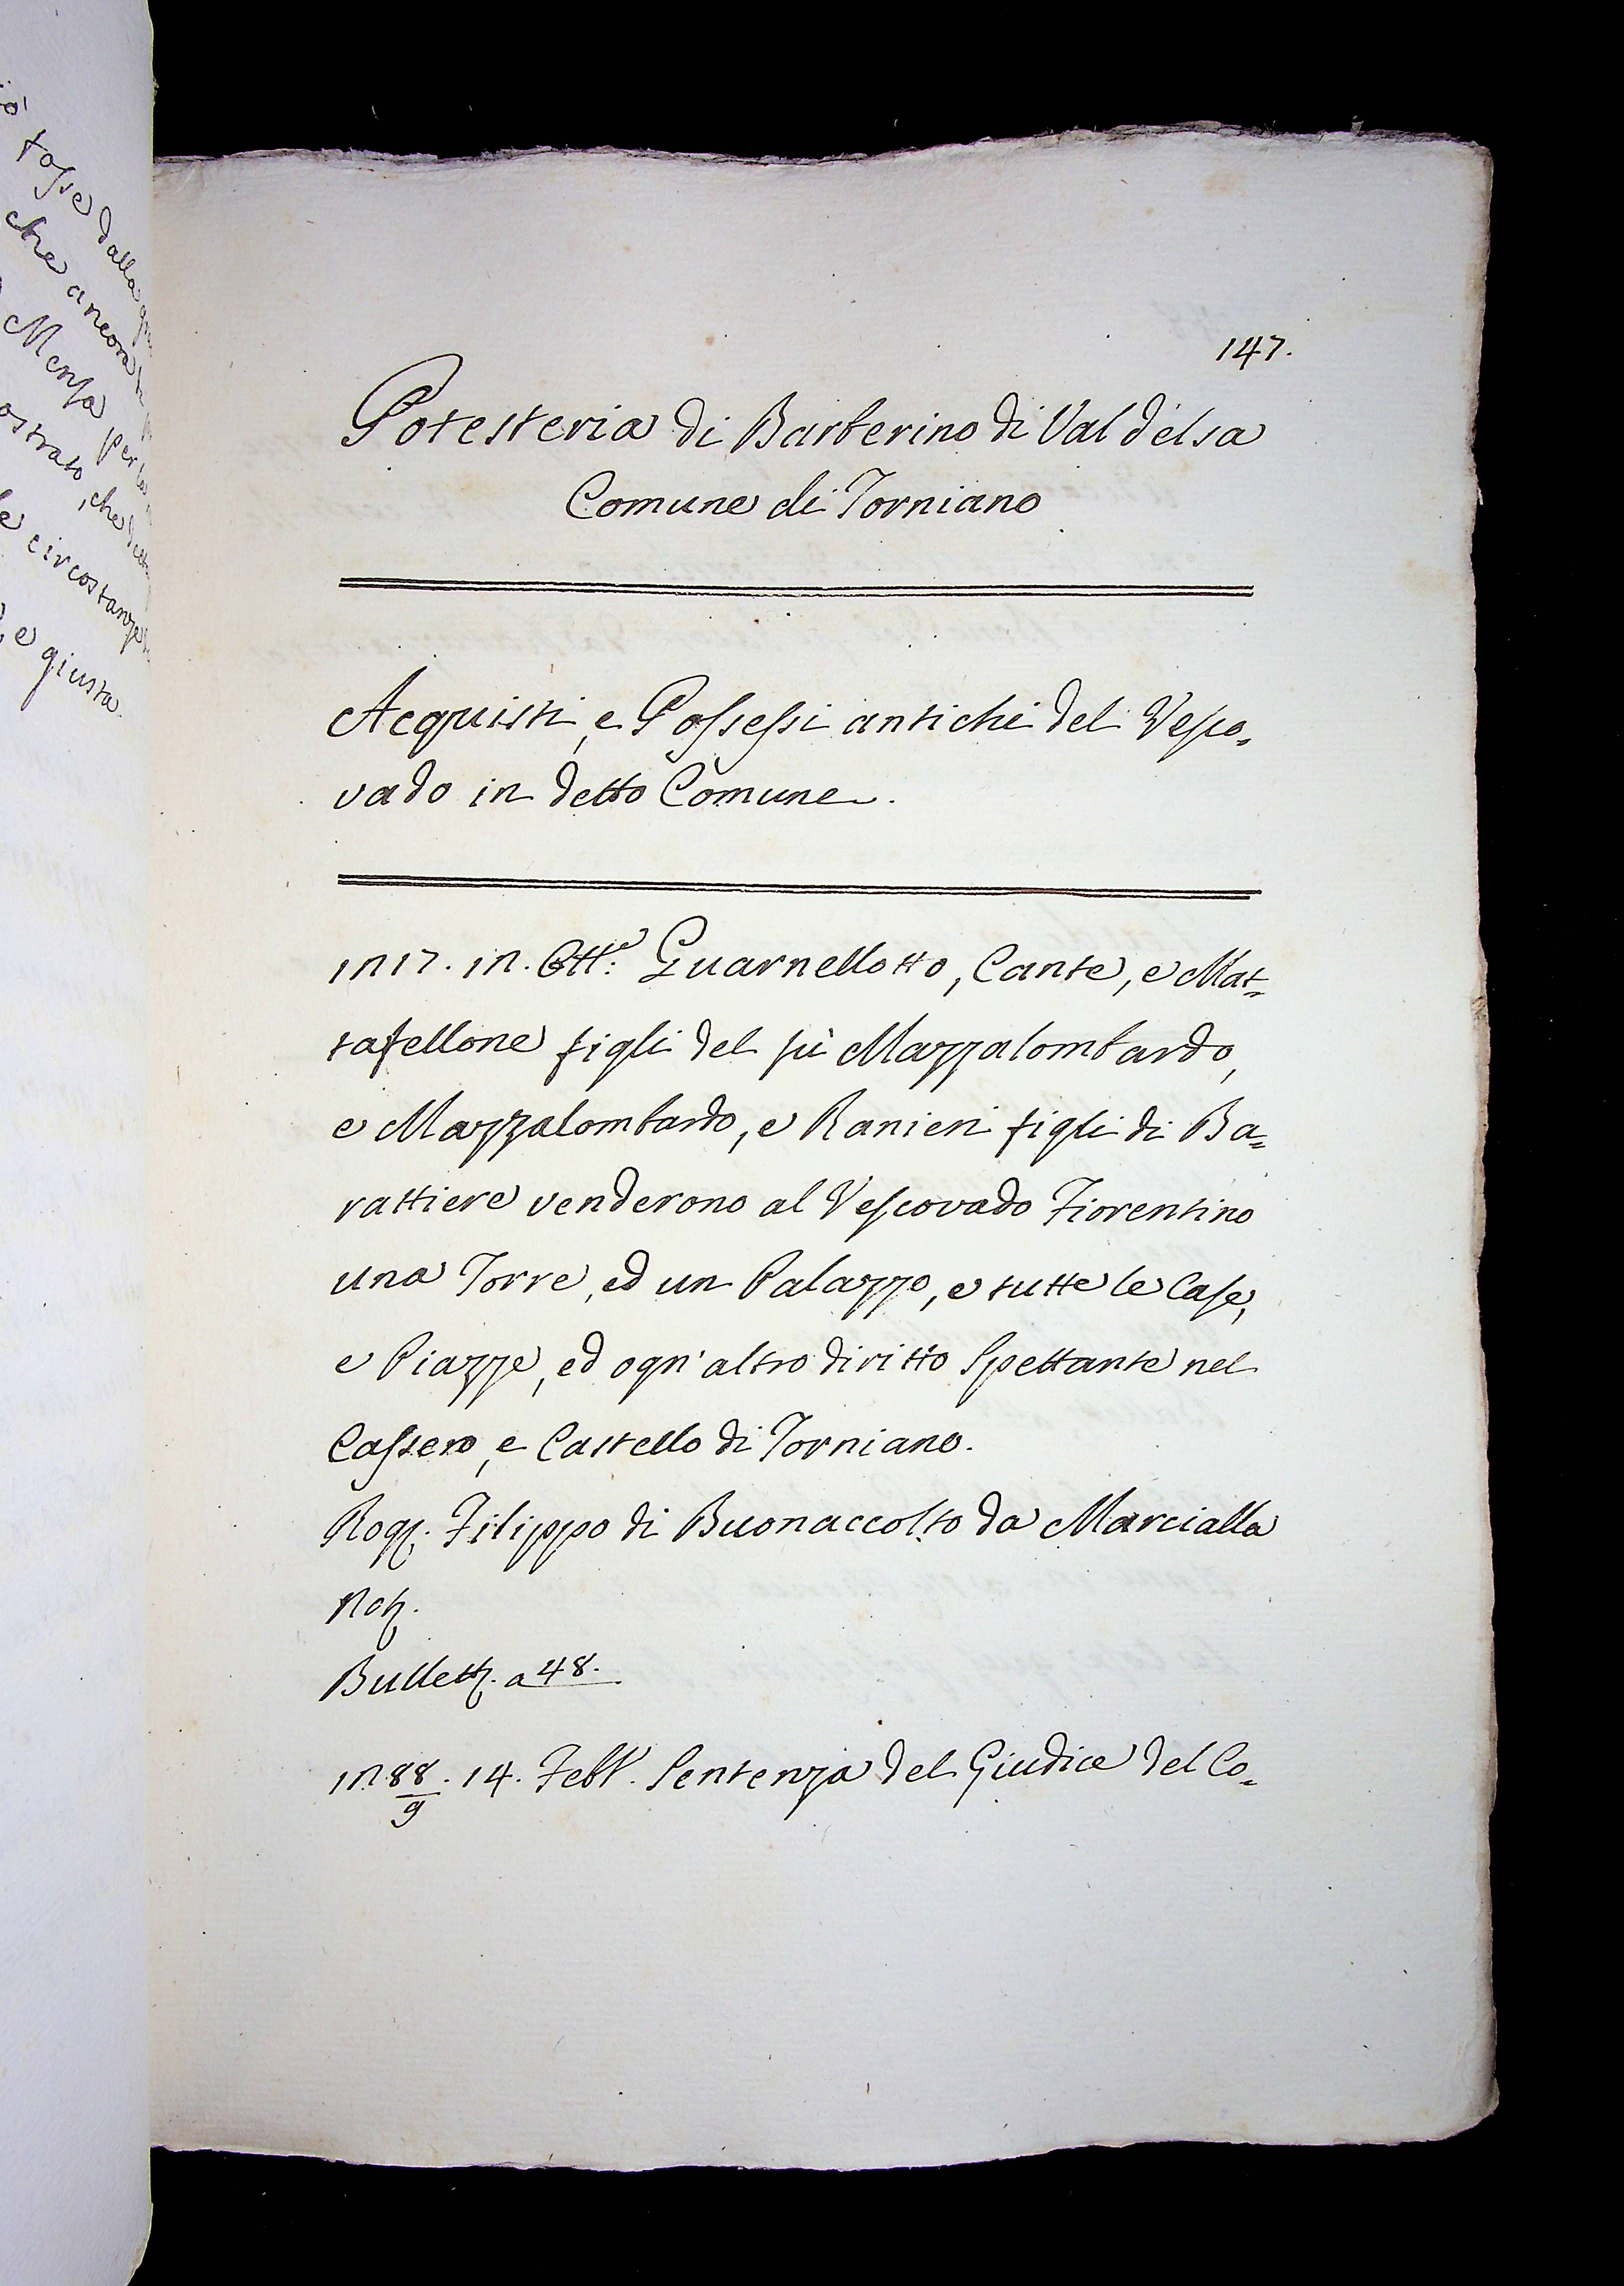 fosse dalla
che ancora
Mensa per la
ostrato, che
circostanze
, e giusta.
147.
Potesteria di Barberino di Val d'elsa
Comune di Torniano
Acquisti, e Possessi antichi del Vesco=
vado in detto Comune.
1217. 12. Ott.e Guarnellotto, Cante, e Mat=
tafellone figli del fù Mazzalombardo,
e Mazzalombardo, e Ranieri figli di Ba=
rattiere venderono al Vescovado Fiorentino
una Torre, ed un Palazzo, e tutte le Case,
e Piazze, ed ogn' altro diritto Spettante nel
Cassero, e Castello di Torniano.
Rog. Filippo di Buonaccolto da Marcialla
Not.
Bullett. a 48.
1288/9. 14. Febb. Sentenza del Giudice del Co=